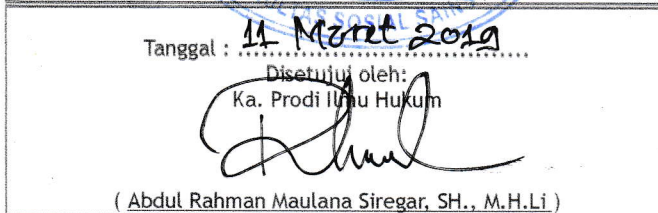 TAS SOSIAL SAINS
Tanggal : 11 Maret 2019
Disetujui oleh:
Ka. Prodi Ilmu Hukum
( Abdul Rahman Maulana Siregar, SH., M.H.Li )